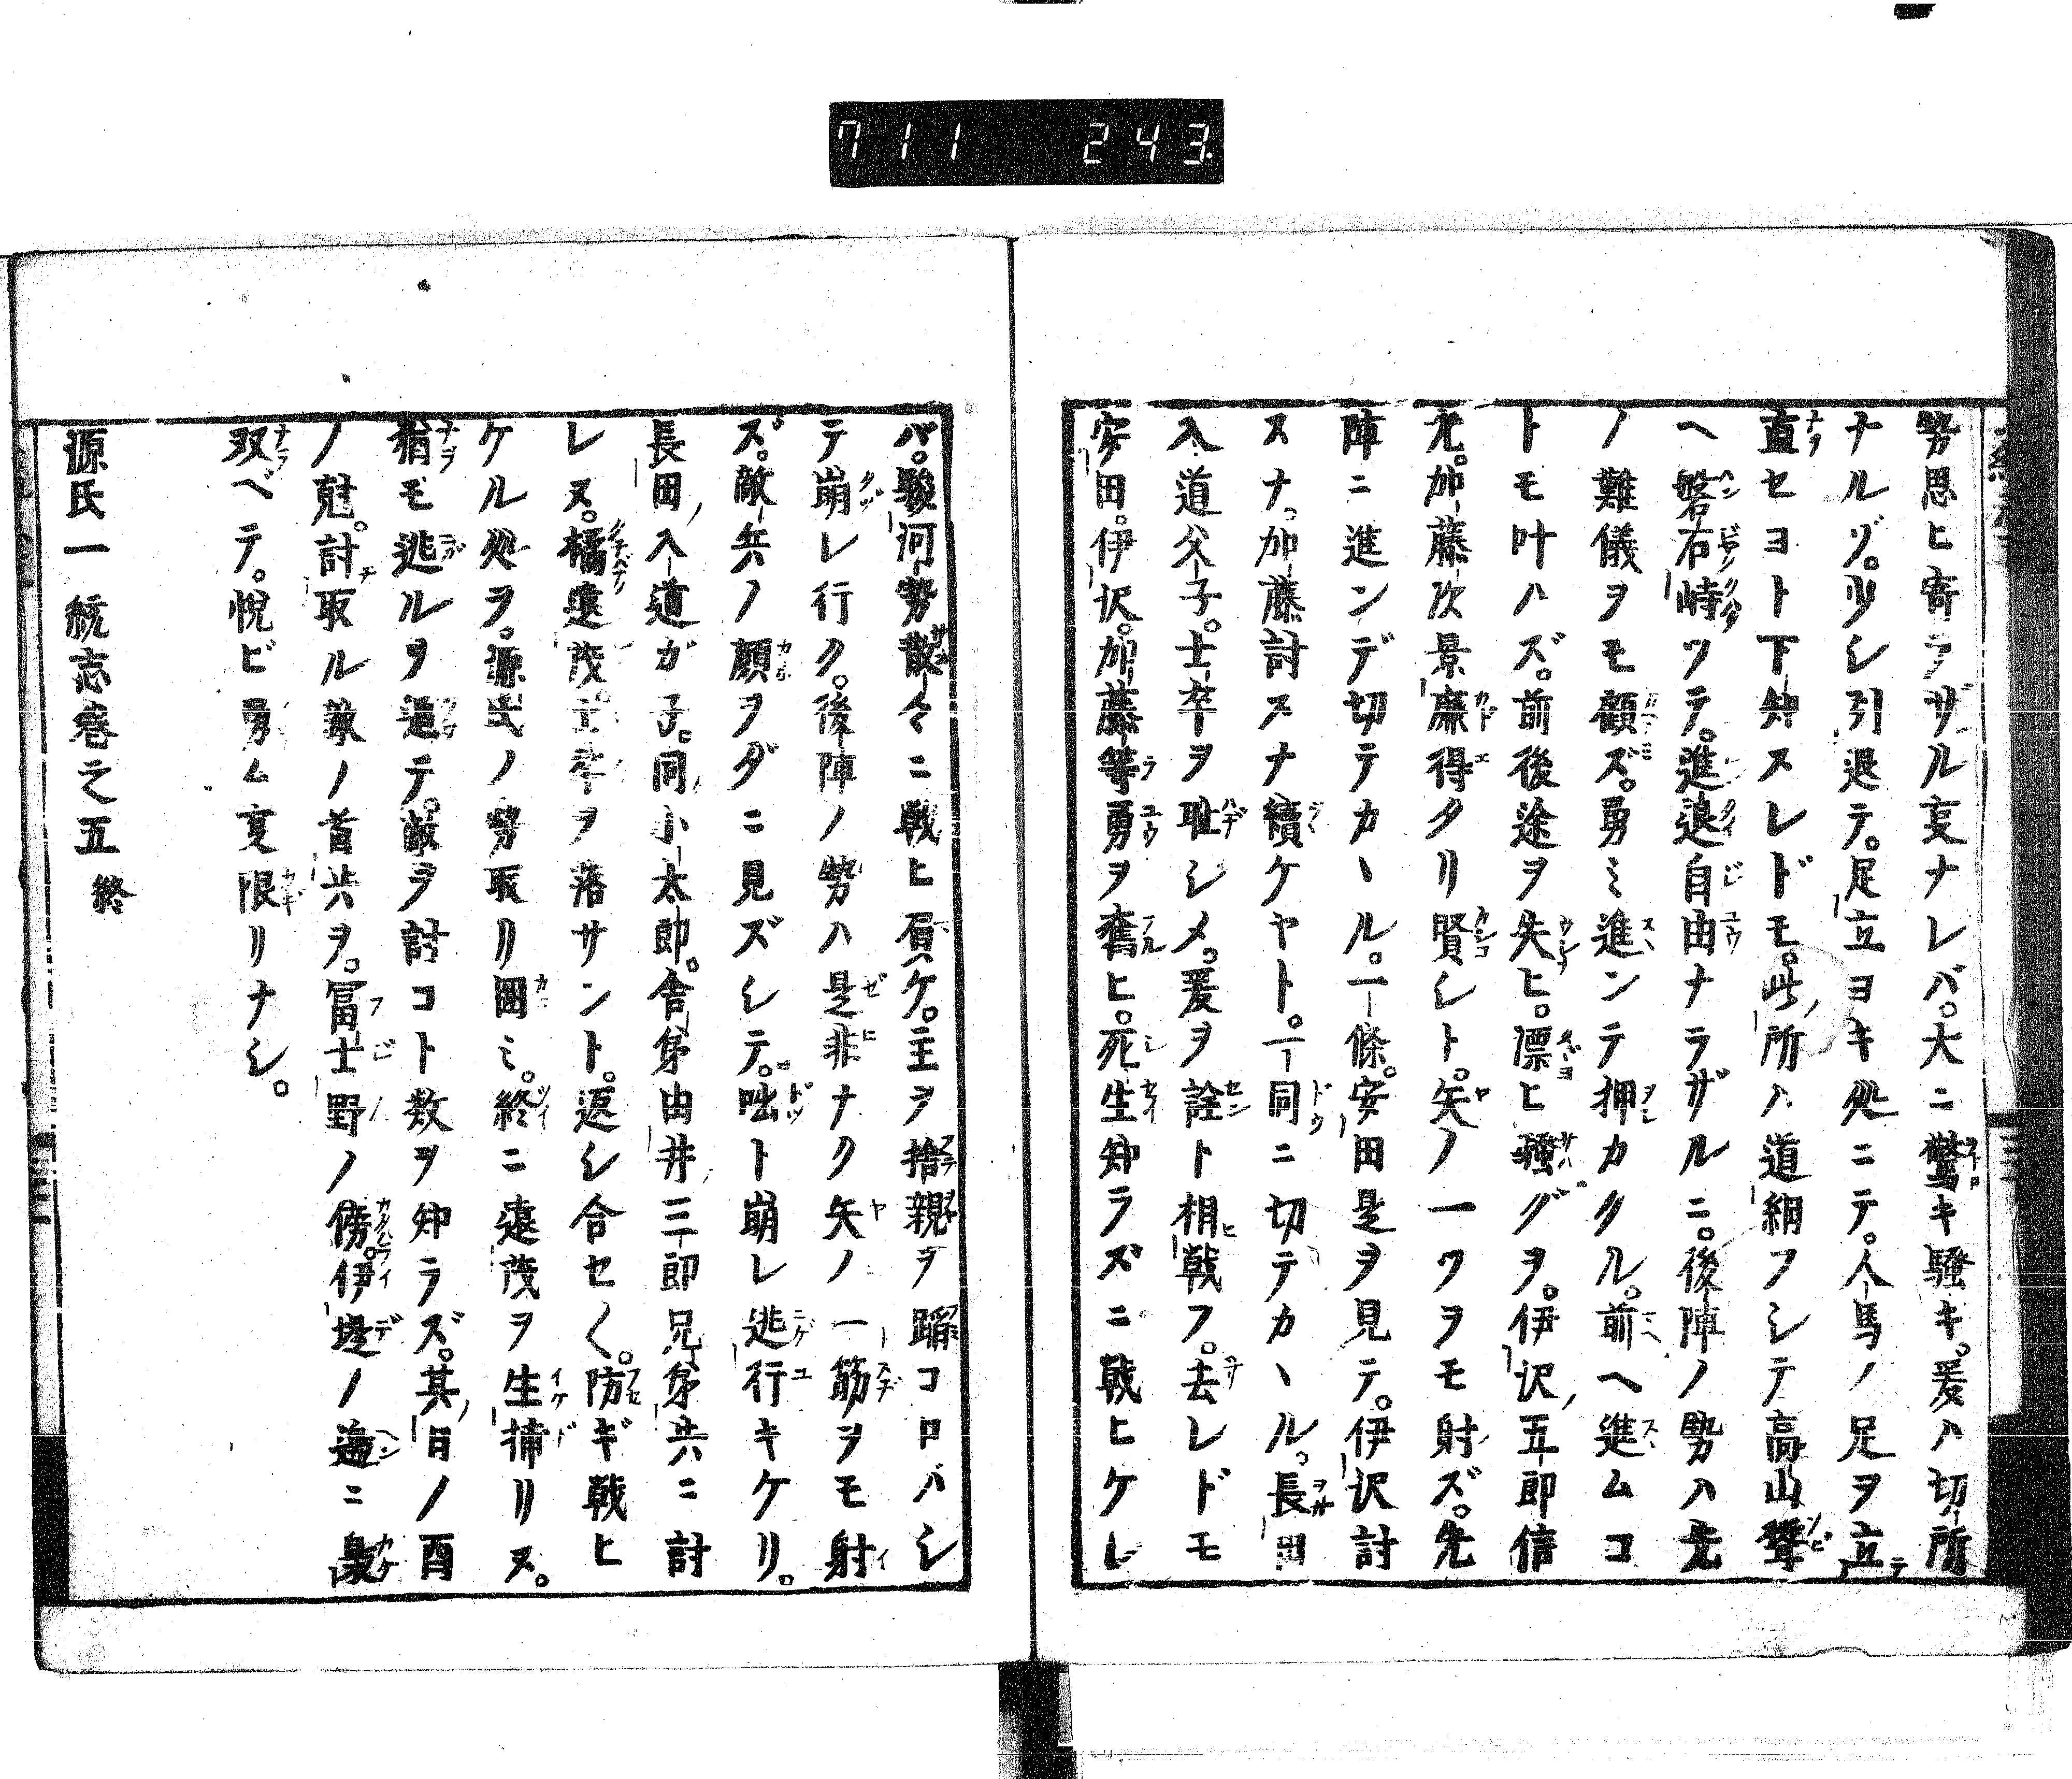 711 243.
勢思ヒ寄ラザル叓ナレバ。大ニ驚キ騒キ。爰ハ切所
ナルゾ。少シ引退テ。足立ヨキ処ニテ。人馬ノ足ヲ立
直セヨト下知スレドモ。此所ハ道細フシテ高山聳
ヘ磐石峙ツテ。進退自由ナラザルニ。後陣ノ勢ハ先
ノ難儀ヲモ顧ズ。勇ミ進ンテ押カクル。前ヘ進ムコ
トモ叶ハズ。前後途ヲ失ヒ。漂ヒ騒グヲ。伊沢五郎信
光。加藤次景廉得タリ賢シト。矢ノ一ツヲモ射ズ。先
陣ニ進ンデ切テカヽル。一條。安田是ヲ見テ。伊沢討
スナ。加藤討スナ續ケヤト。一同ニ切テカヽル。長田
入道父子。士卒ヲ耻シメ。爰ヲ詮ト相戦フ。去レドモ
安田。伊沢。加藤等勇ヲ奮ヒ。死生知ラズニ戦ヒケレ
バ。駿河勢散々ニ戦ヒ屓ケ。主ヲ捨親ヲ蹈コロバシ
テ崩レ行ク。後陣ノ勢ハ是非ナク矢ノ一筋ヲモ射
ズ。敵兵ノ顔ヲダニ見ズシテ。咄ト崩レ逃行キケリ。
長田入道ガ子。同小太郎。舎弟由井三郎兄弟共ニ討
レヌ。橘遠茂士卒ヲ落サント。返シ合セ〱。防ギ戦ヒ
ケル処ヲ。源氏ノ勢取リ圍ミ。終ニ遠茂ヲ生捕リヌ。
猶モ逃ルヲ追テ。敵ヲ討コト数ヲ知ラズ。其日ノ酉
ノ尅。討取ル敵ノ首共ヲ。冨士野ノ傍。伊堤ノ邉ニ梟
双ベテ。悦ビ勇ム叓限リナシ。
源氏一統志巻之五終